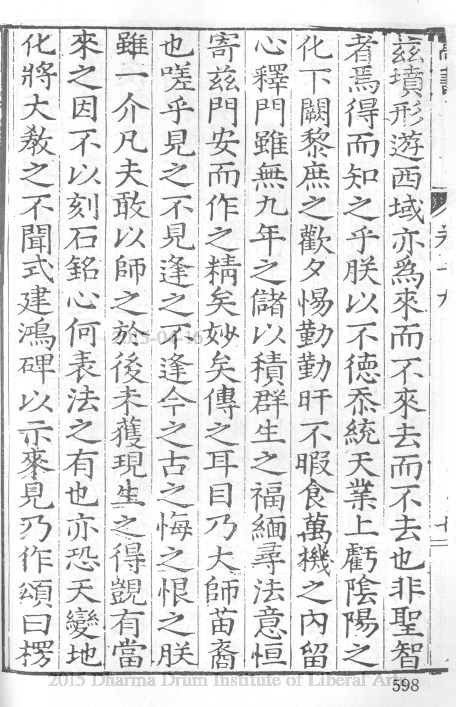 茲墳形遊西域亦爲來而不來去而不去也非聖智
者焉得而知之乎朕以不德忝統天業上虧陰陽之
化下闕黎庶之歡夕惕勤勤旰不暇食萬機之內留
心釋門雖無九年之儲以積群生之福緬尋法意恒
寄茲門安而作之精矣妙矣傳之耳目乃大師苗裔
也嗟乎見之不見逢之不逢今之古之悔之恨之朕
雖一介凡夫敢以師之於後未獲現生之得覬有當
來之因不以刻石銘心何表法之有也亦恐天變地
化將大敎之不聞式建鴻碑以示來見乃作頌曰楞
2015-04-16
2015 Dharma Drum Institute of Liberal Arts
598